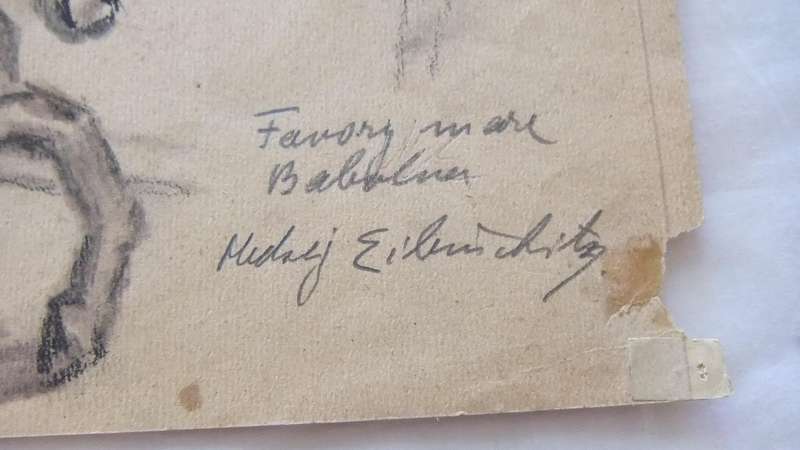 Favory mare
Babolna
Eibenschitz